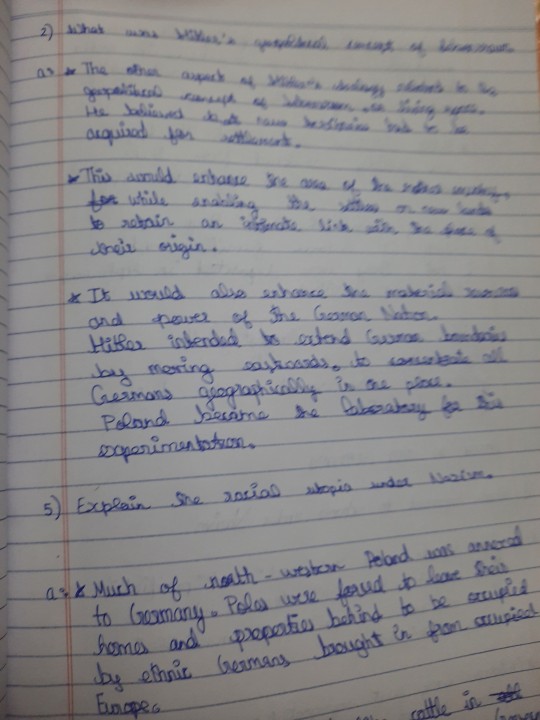 2) What was Hitler's geopolitical concept of
a:- * The other aspect of Hitler's ideology related to the
geopolitical concept of or living space.
He believed that new territories had to be
acquired for settlement.
* This would enhance the area of the mother country,
while enabling the settlers on new lands
to retain an intimate link with the place of
their origin.
* It would also enhance the material resources
and power of the German Nation.
Hitler intended to extend German boundaries
by moving eastwards, to concentrate all
Germans geographically in one place.
Poland became the laboratory for this
experimentation.
5) Explain the racial utopia under Nazism.
a:- * Much of north-western Poland was annexed
to Germany. Poles were forced to leave their
homes and properties behind to be occupied
by ethnic Germans brought in from occupied
Europe.
cattle in